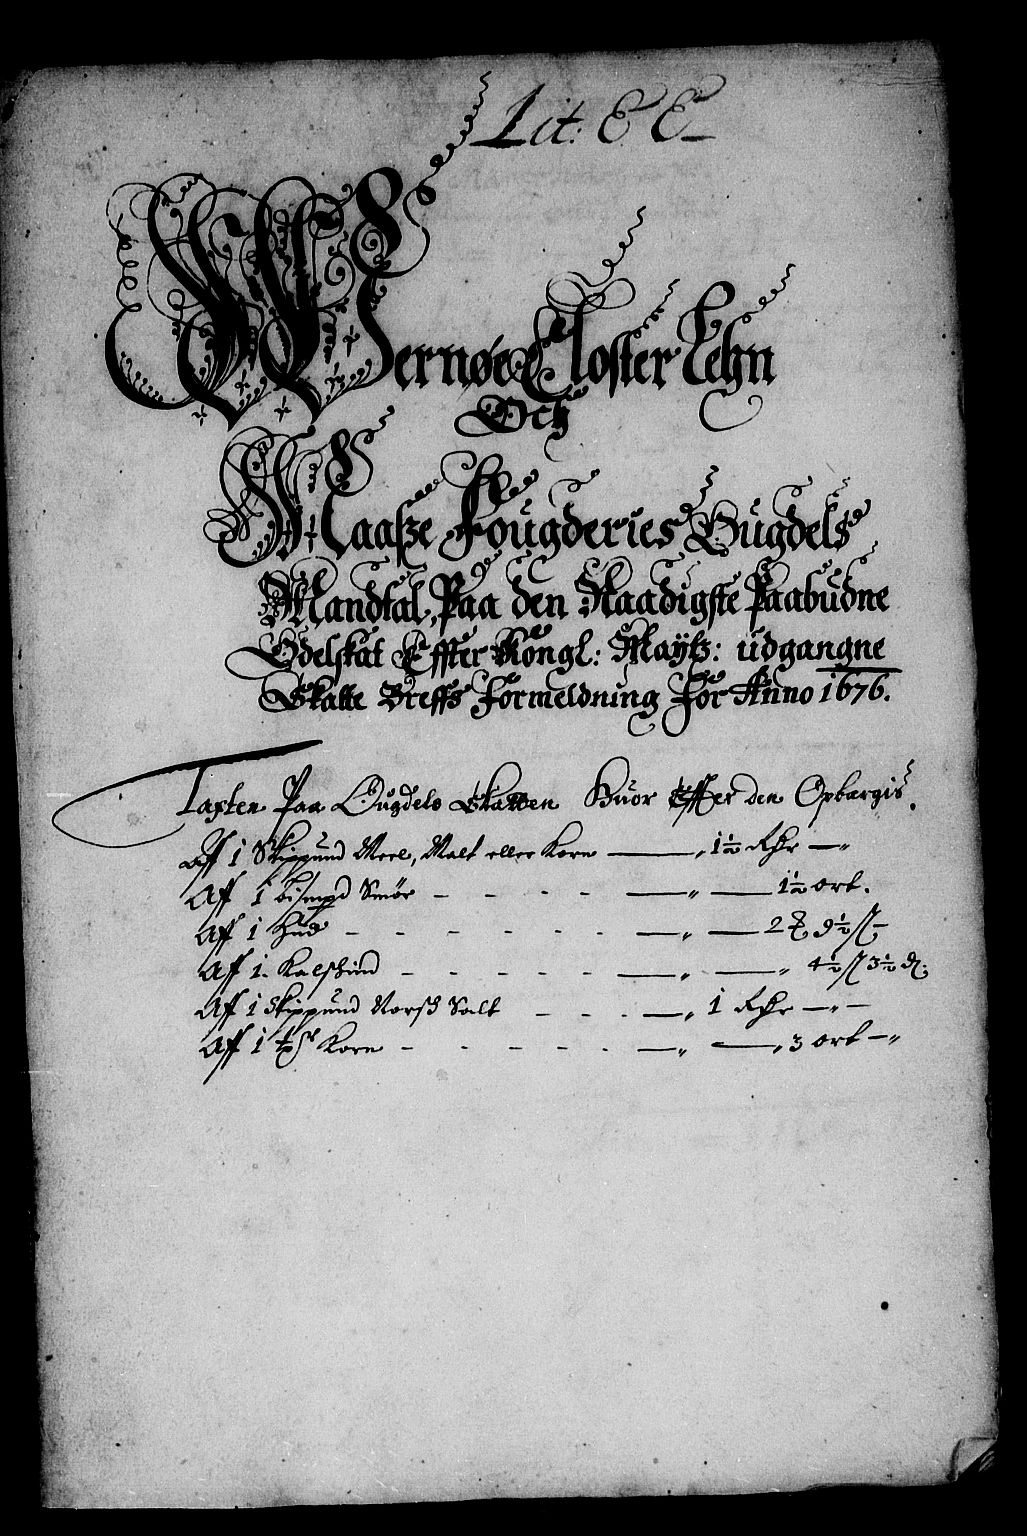 Lit: E E
Wernøe Closter Lehn
Och
Maasze Fougderies Bugdels
Mandtal, Paa den Naadigste Paabudne
Odelskat Effter Kongl: Maÿtz: udgangne
Skatte Breffs Formeldning For Anno 1676.
Taxten Paa Bugdels Skatten Huor Effter den Opbærgis.
Aff 1 Skippund Meel, Malt eller Korn — „ 1½ Rdr — „
Aff 1 bismpd Smør - - - - — „ — 1½ ort.
Aff 1 Hud - - - - - - — „ — 2 ß —
Aff 1. Kalfskind - - - - - — „ — „ 4½ ß 3½ d:
Aff 1 Skippund Norsk Salt - - - — „ 1 Rdr — „ —
Aff 1 tr Korn - - - - - — „ — „ 3 ort — „